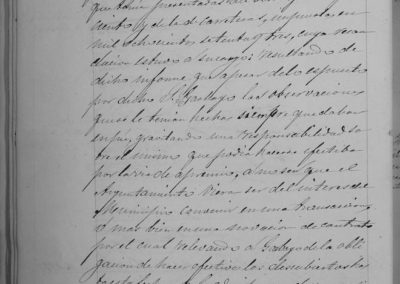 que tenia presentadas
de la de carretera, impuesta en
mil ochocientos setenta y tres, cuya recau
dacion estuvo a su cargo; resultando de
dicho informe, que a pesar de lo expuesto
por dicho Sr. Gallego las observaciones
que se le tenian hechas siempre quedaban
en pie, gravitando una responsabilidad so
bre el mismo que podia hacerse efectiva
por la via de apremio, a no ser que el
Ayuntamiento viera ser del interes del
Municipio convenir en una transaccion,
o mas bien en una novacion de contrato
por el cual relevando a Gallego de la obli
gacion de hacer efectivo los descubiertos